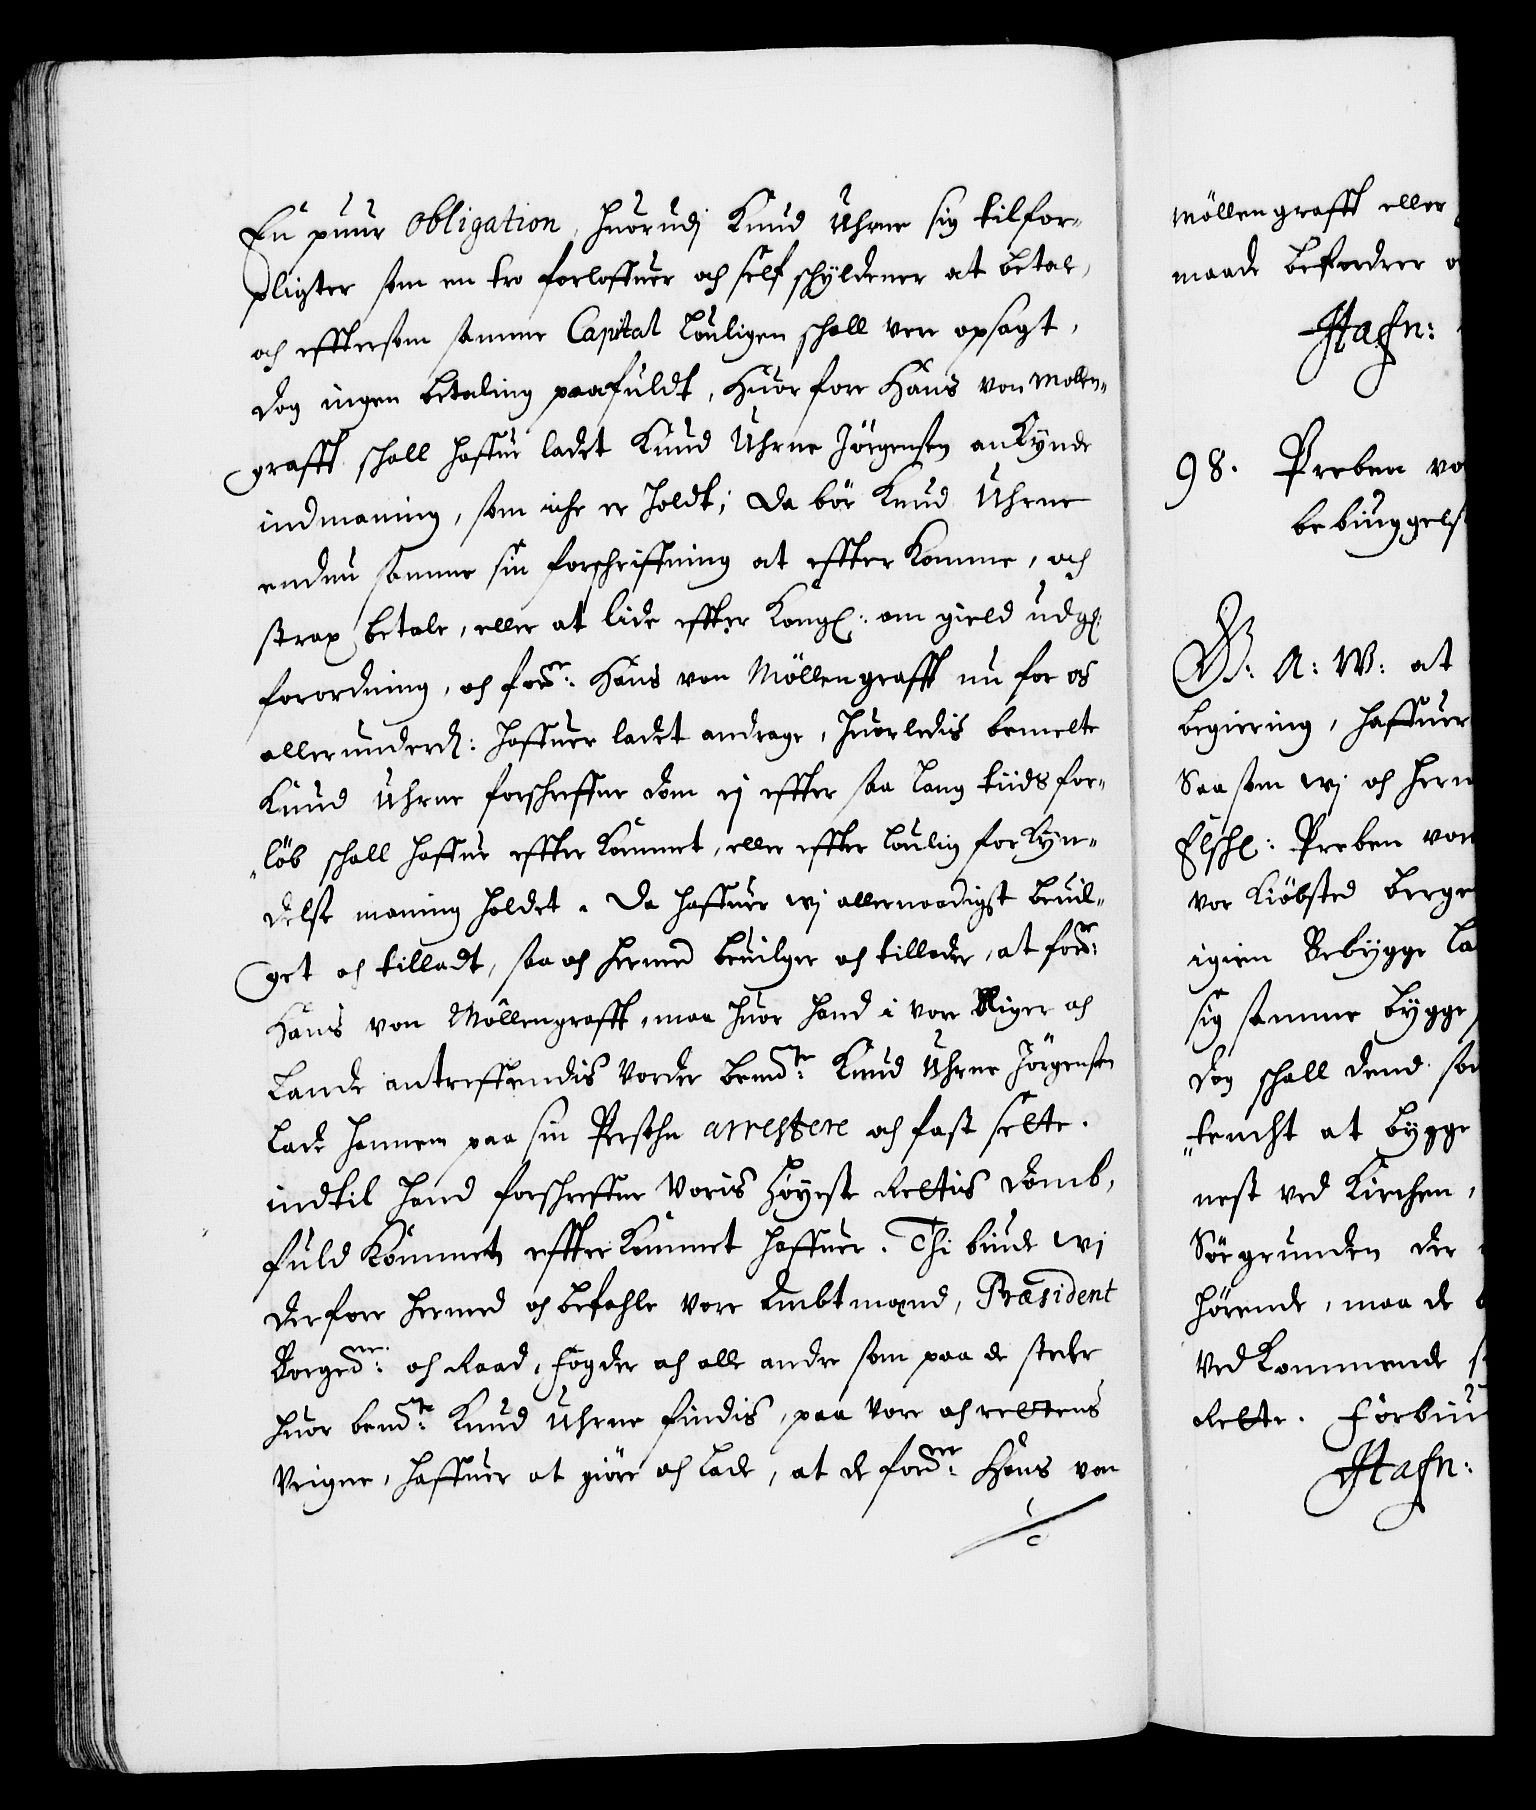 En puur obligation, huorudj Knud Uhrne sig tilfor-
pligter som en tro forloffuer och self schyldener at betale,
och effttersom samme Capital louligen schall vere opsagt,
dog ingen betaling paafuldt, huorfore Hans von Mollen-
grafft schall haffue ladet Knud Uhrne Jörgensen ankynde
indmaning, som iche er holdt; Da bör Knud Uhrne
endnu samme sin forschriffning at effterkomme, och
strax betale, eller at lide effter Kongl: om gield udg:
forordning, och fornde: Hans von Möllengrafft nu for os
allerunderd: haffuer ladet andrage, huorledis bemelte
Knud Uhrne forschreffne dom ej effter saa lang tiids for-
löb schall haffue effterkommet, eller effter loulig forkyn-
delse maning holdet. Da haffuer wj allernaadigst beuil-
get och tilladt, saa och hermed beuilger och tillader, at fornde:
Hans von Möllengrafft, maa huor hand i vore Riger och
Lande antreffendis vorder bemdte: Knud Uhrne Jörgensen
lade hannem paa sin Persohn arrestere och fast sette.
indtil hand forschreffne Voris Höyeste Rettis domb,
fuldkommen effterkommet haffuer. Thi biude wj
derfore hermed och befahle vore Ambtmænd, Præsident
Borgemr: och Raad, fogder och alle andre som paa de steder
huor bemdte: Knud Uhrne findis, paa vore och rettens
Veigne, haffuer at giöre och lade, at de fornde: Hans von
Möllengrafft eller
maade befordrer
Hafn:
98. Preben vo
bebuyggels
G: A: W: at
begiering, haffuer
Saasom wj och herm
Elschl: Preben von
vor Kiöbsted berge
igien Bebygge la
sig samme bygge
dog schall dend so
tencht at bygge
nest ved Kirchen,
Sörgrunden der
hörende, maa de
Vedkommende
Rette. Forbiu
Hafn: